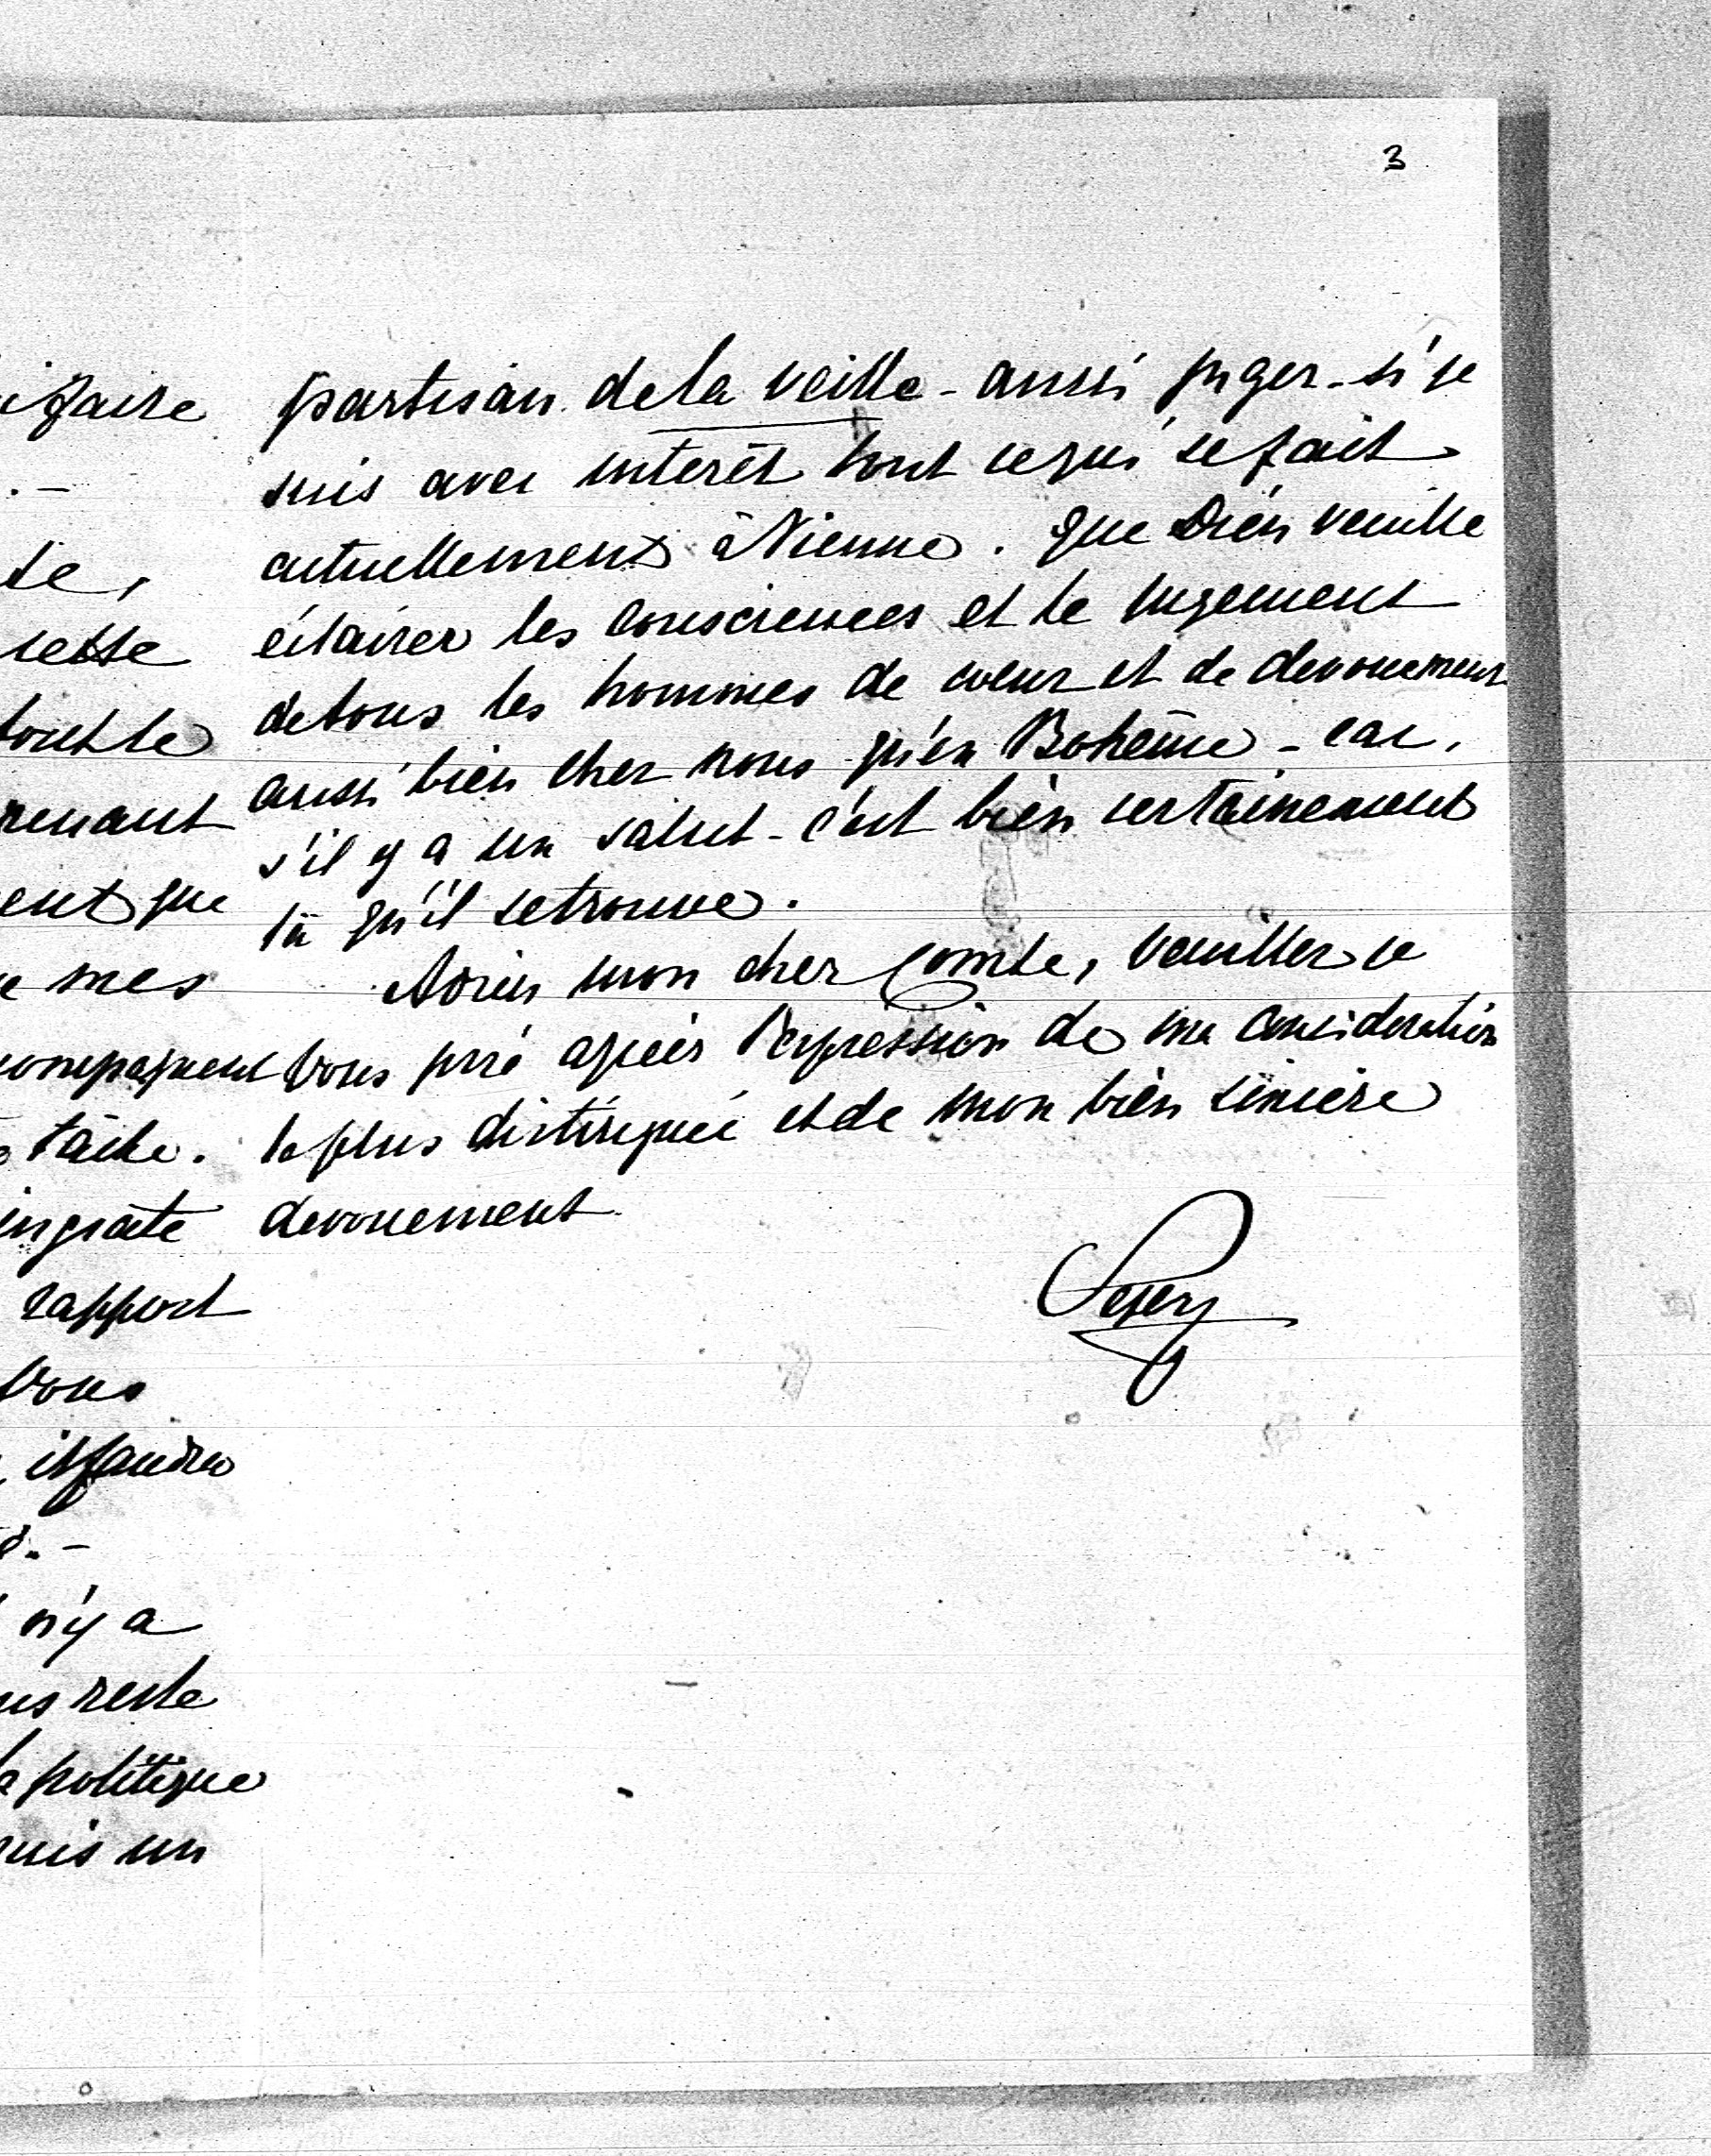 3
ifaire
.-
te,
cette
tout le
renant
ent que
e mes
compagnent
tâche.
ingrate
rapport
vous
, il faudra
.-
n'y a
us reste
la politique
puis un
partisan de la veille - aussi juger - si je
suis avec interêt tout ce qui se fait
actuellement à Vienne. que Dieu veuille
éclairer les consciences et le jugement
de tous les hommes de coeur et de devouement
aussi bien chez nous qu'en Bohême - car,
s'il y a un salut - c'est bien certainement
là qu'il se trouve.
Adieu mon cher Comte, veuillez je
vous prie agréer l'expression de ma consideration
la plus distinguée et de mon bien sincère
devouement